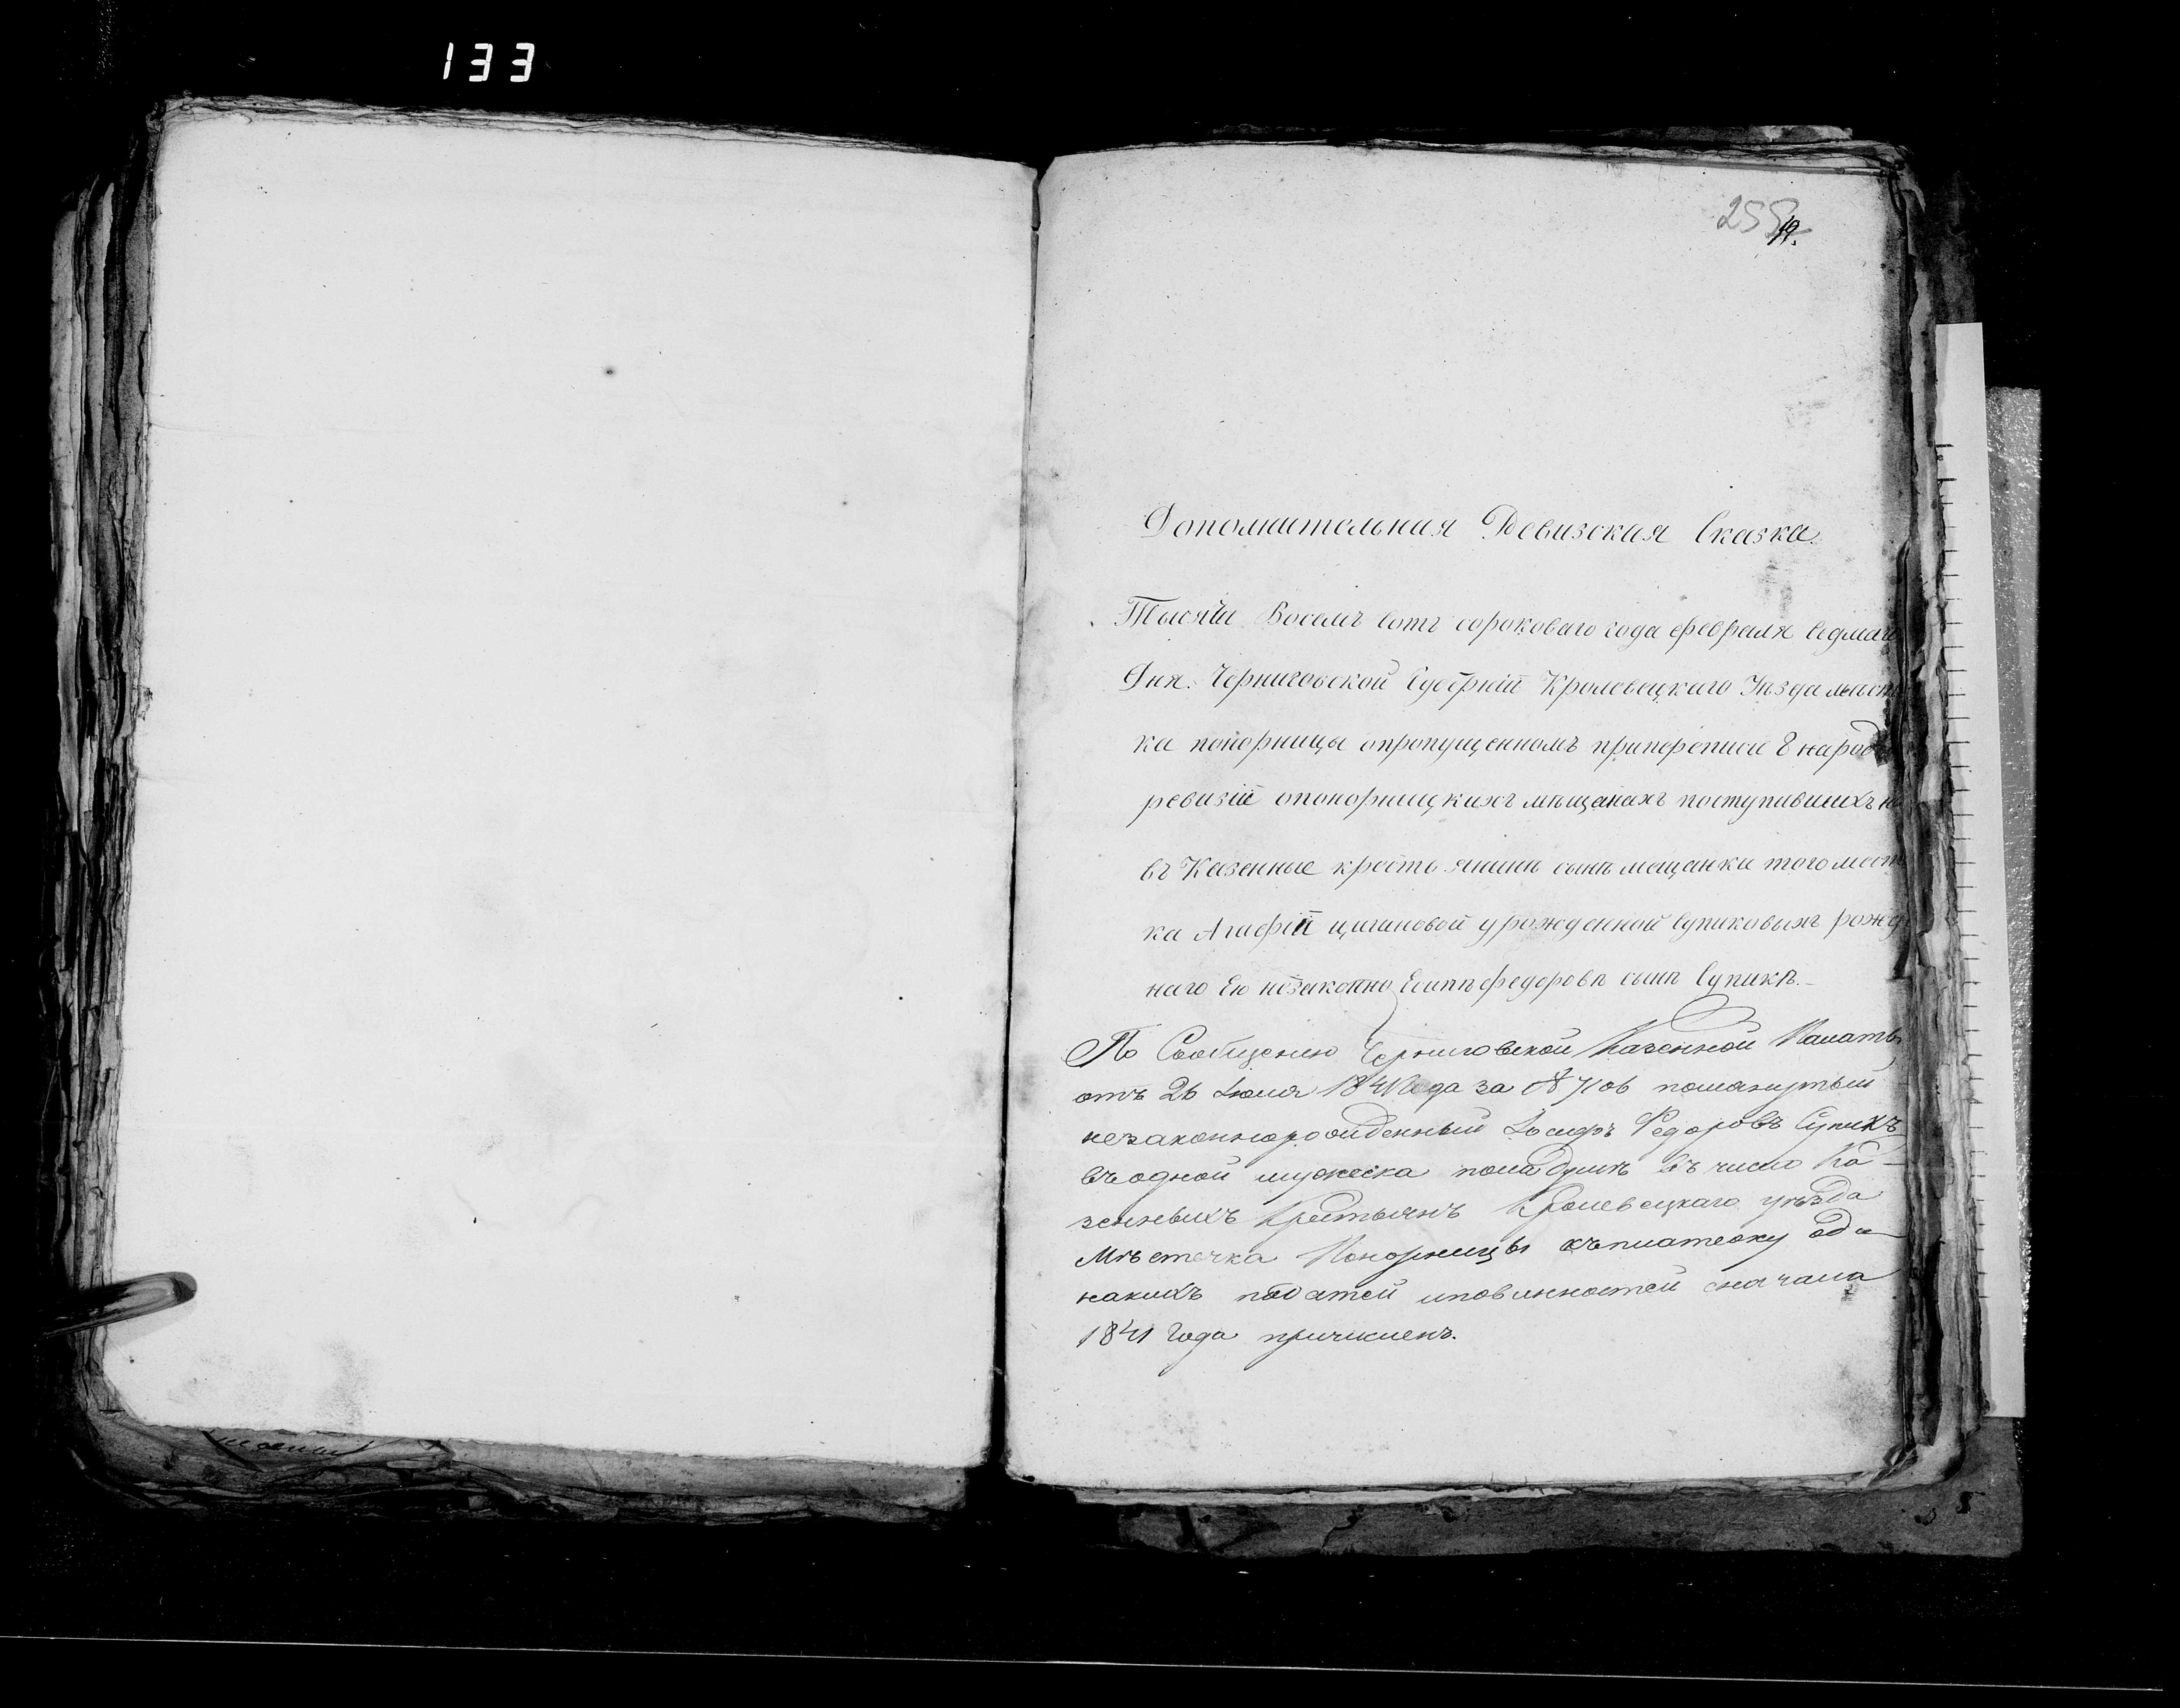 133
255
19.
Дополнительная Ревизская Сказка.
Тысяча Восемъ Сотъ сороковаго года февраля Седмаго
Дня. Черниговской Губерніи Кролевецкаго Уѣзда мѣсте
ка понорницы опропущенномъ припереписи 8 народ
ревизіи опонорницкихъ мѣщанахъ поступившихъ н
въ Казенные крестьянинъ сынъ мещанки того мест
ка Агафіи цигановой урожденной Супиковыхъ рожде
наго Ею незаконно Есипъ федоровъ сынъ Супикъ.
По Сообщенію Черниговской Казенной Палаты
отъ 26 Іюля 1841 года за № помянутый
незаконнорожденный Іосифъ Федоровъ Супикъ
въ одной мужеска пола душѣ въ число Ка-
зенныхъ Крестьянъ Кролевецкаго уѣзда
Мѣстечка Понорницы къплатежу оди-
накихъ податей иповинностей сначала
1841 года причисленъ.